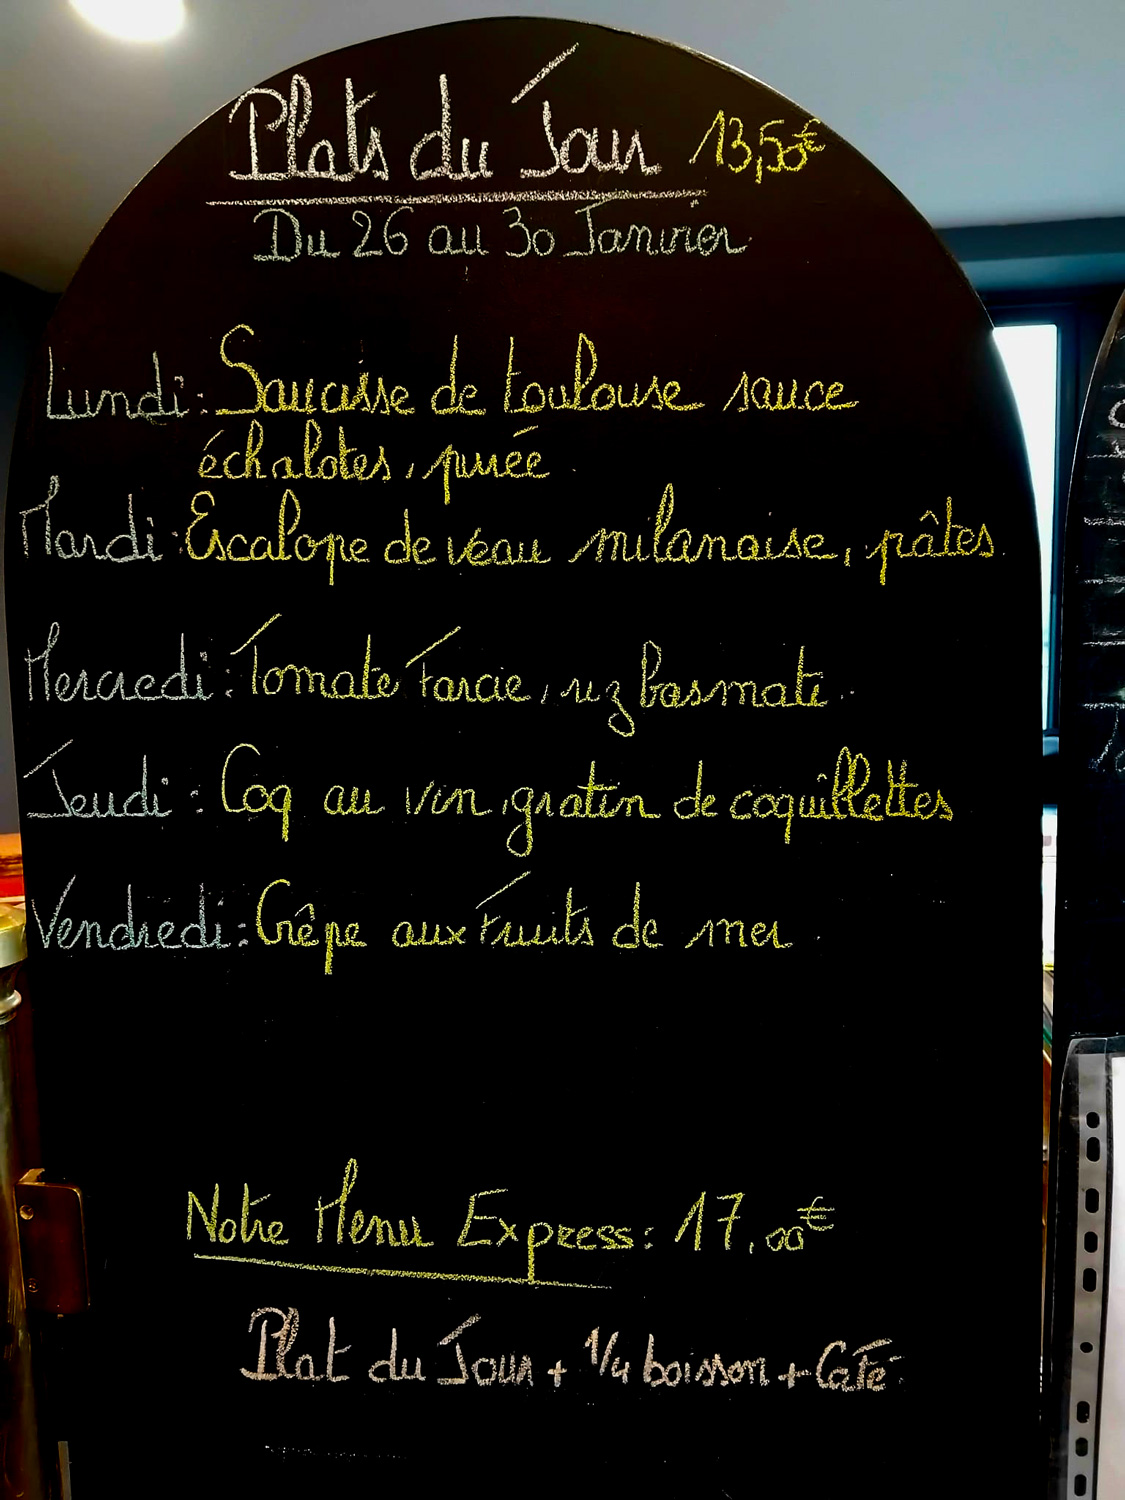 Plats du Jour 13,50€
Du 26 au 30 Janvier
Lundi : Saucisse de toulouse sauce
échalotes, purée.
Mardi : Escalope de veau milanaise, pâtes.
Mercredi : Tomate Farcie, riz basmati.
Jeudi : Coq au vin, gratin de coquillettes
Vendredi : Crêpe aux Fruits de mer.
Notre Menu Express : 17,00€
Plat du Jour + 1/4 boisson + Café.